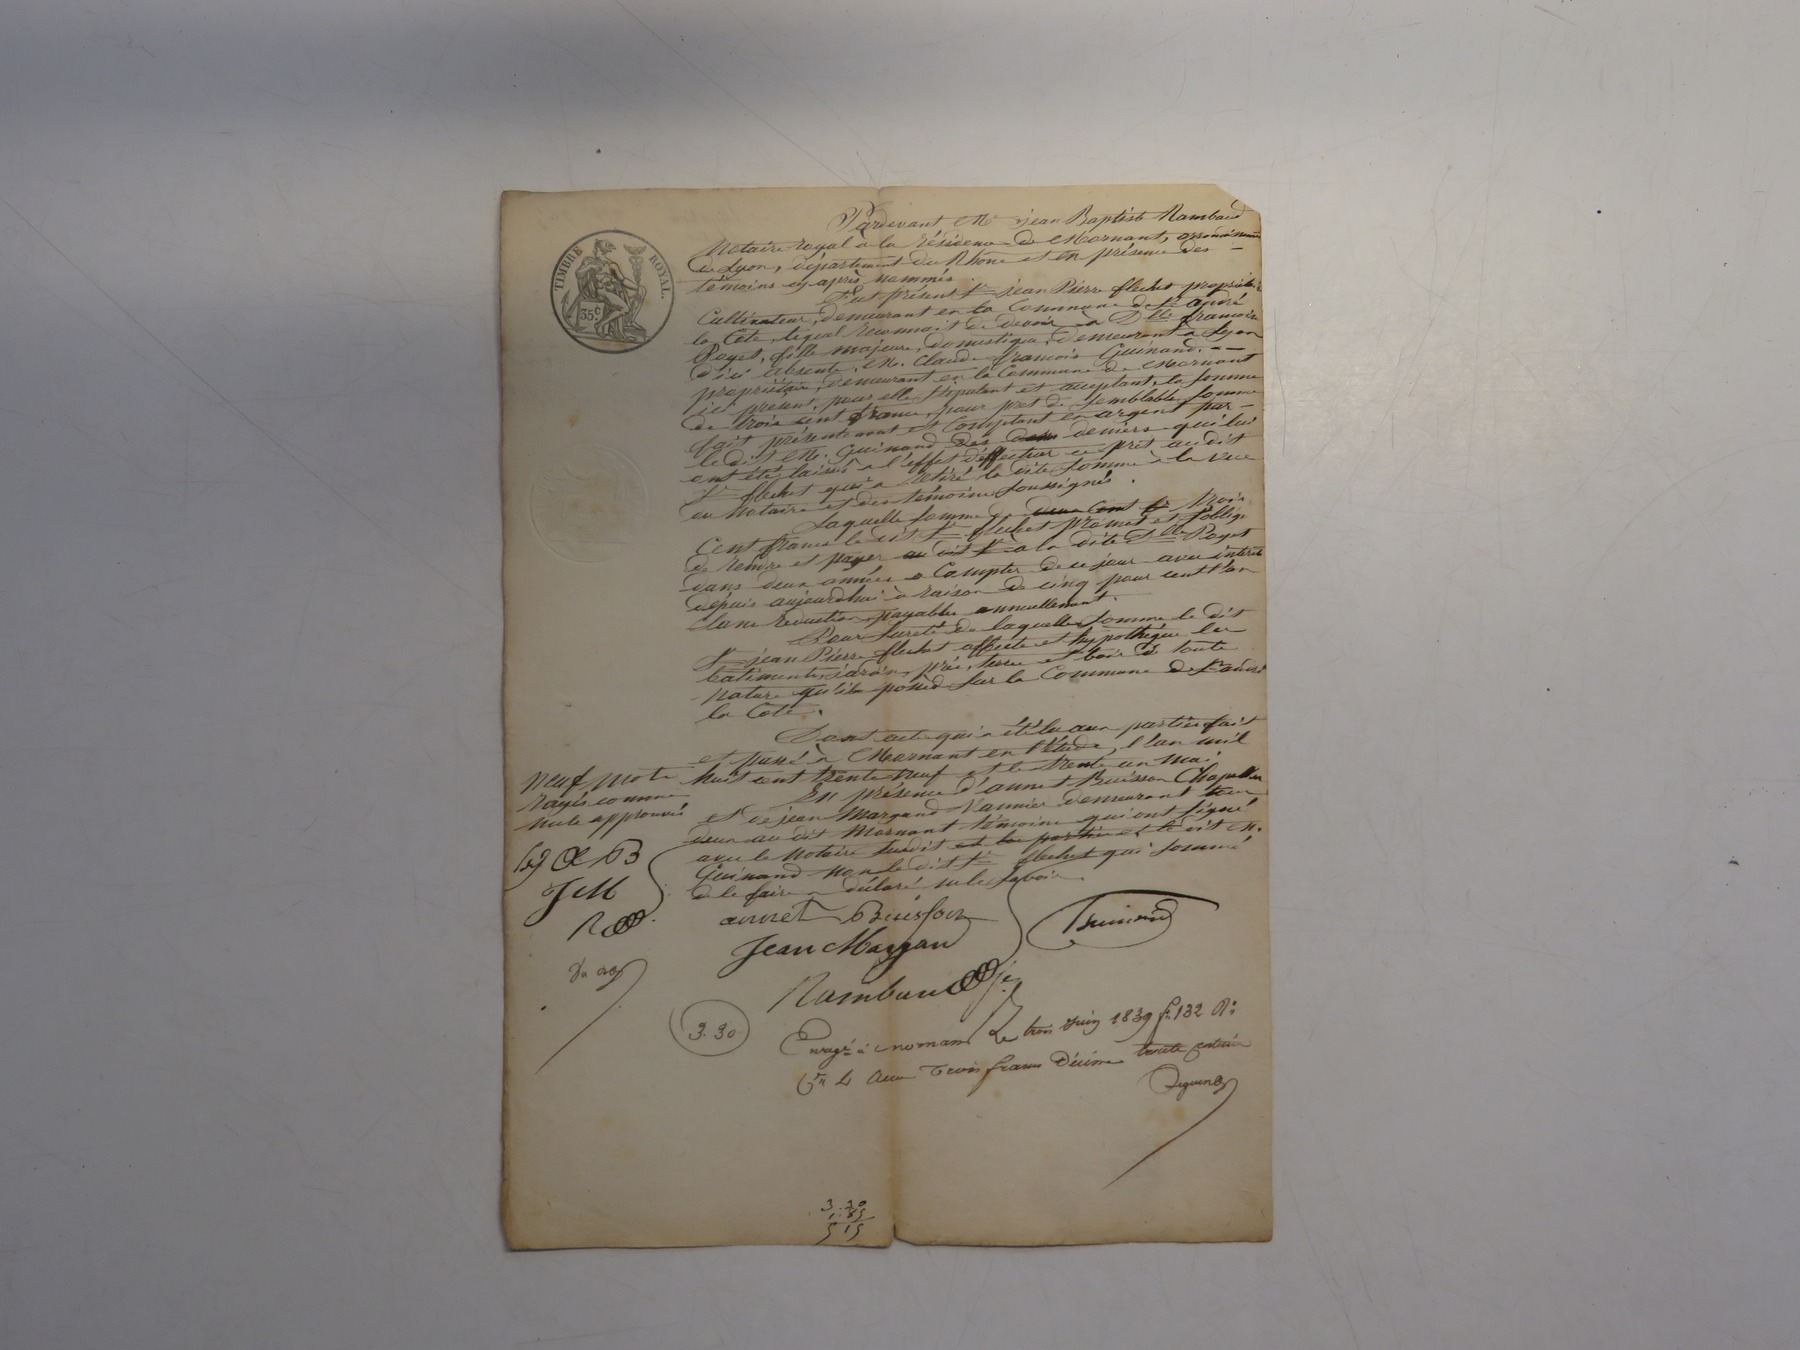 TIMBRE ROYAL.
35c
Pardevant Me jean Baptiste Rambaud
Notaire royal à la résidence de Mornant, arrondissement
de Lyon, département du Rhône et en présence des
témoins cy après nommés
Fut présent Sr jean Pierre flechet propriétaire
Cultivateur, demeurant en la Commune de St andré
la Cote, lequel reconnait de devoir à Dlle francoise
Poyet, fille majeure, domestique, demeurant à Lyon
d'ici absente, M. Claude francois Guinand.
propriétaire, demeurant en la Commune de Mornant
ici present, pour elle stipulant et acceptant, la somme
de trois cent francs, pour pret de semblable somme
fait présentement et Comptant en argent par
le dit M. Guinand des deniers qui lui
ont été laissés à l'effet d'effectuer ce pret au dit
Sr flechet qui a retiré la dite somme à la vue
du Notaire et des témoins soussignés.
Laquelle somme de deux cent fr trois
Cent francs le dit Sr flechet promet et s'oblige
de rendre et payer au dit Sr à la dite Dlle Poyet
dans deux années à Compter de ce jour avec intérêts
dépuis aujourdhui à raison de cinq pour cent l'an
sans reduction, payable annuellement.
Pour sureté de laquelle somme le dit
Sr jean Pierre flechet affecte et hypothèque les
batiments, jardin, prés, terre et bois de toute
nature qu'il possed sur la Commune de St andré
la Cote.
Dont acte qui a été lu aux parties fait
et passé à Mornant en l'étude, l'an mil
huit cent trente neuf et le trente un mai.
En présence d'annet Buisson Chapellier
et de jean Margand Vannier demeurant tous
deux au dit Mornant témoins qui ont signé
avec le Notaire susdit et les parties et le dit M.
Guinand non le dit Sr flechet qui sommé
de le faire a déclaré ne le savoir
Neuf mots
rayés comme
nuls approuvés
B
J M
R
annet Buisson
Guinand
Jean Margan
Rambaud
3.30
Enregé à mornant Le trois Juin 1839 fo 132 Ro
Ce 4 Reçu Trois francs Décime trente centimes
3.30
1.85
5 15